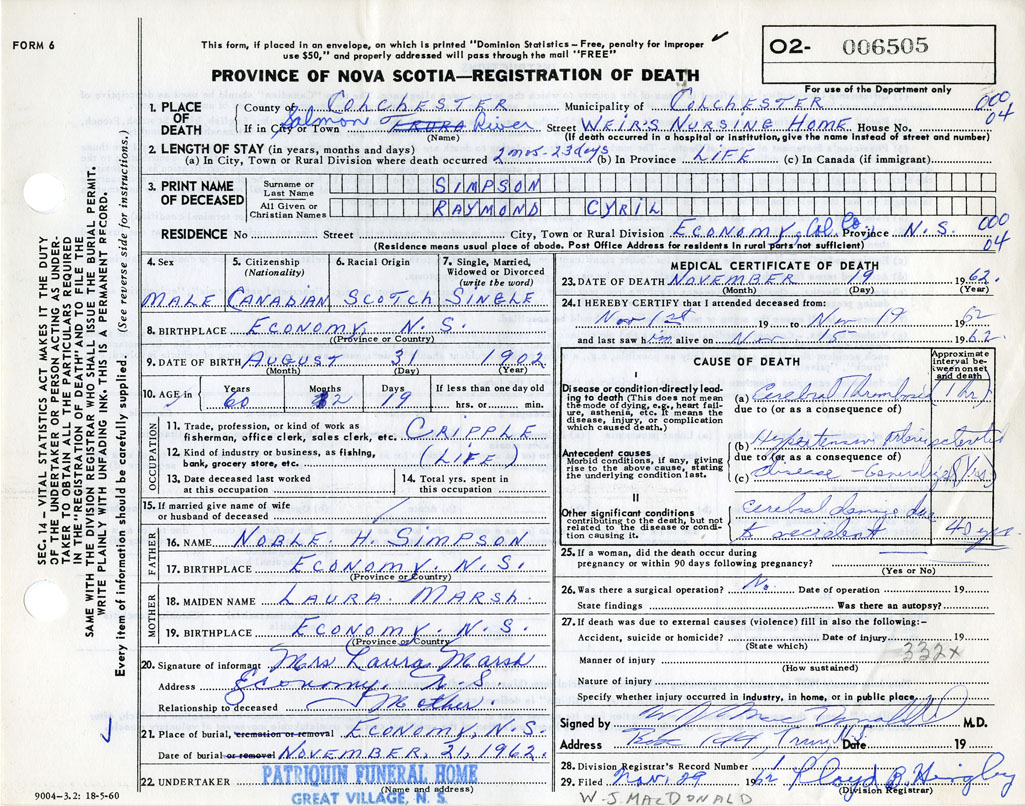 FORM 6
This form, if placed in an envelope, on which is printed "Dominion Statistics – Free, penalty for improper
use $50," and properly addressed will pass through the mail "FREE"
O2- 006505
For use of the Department only
PROVINCE OF NOVA SCOTIA—REGISTRATION OF DEATH
SEC. 14 – VITAL STATISTICS ACT MAKES IT THE DUTY
OF THE UNDERTAKER OR PERSON ACTING AS UNDER-
TAKER TO OBTAIN ALL THE PARTICULARS REQUIRED
IN THE "REGISTRATION OF DEATH" AND TO FILE THE
SAME WITH THE DIVISION REGISTRAR WHO SHALL ISSUE THE BURIAL PERMIT.
WRITE PLAINLY WITH UNFADING INK. THIS IS A PERMANENT RECORD.
Every item of information should be carefully supplied. (See reverse side for instructions.)
1. PLACE OF DEATH
County of COLCHESTER Municipality of COLCHESTER 000 04
If in City or Town Salmon TRURO River Street WEIR'S NURSING HOME House No.
(Name) (If death occurred in a hospital or institution, give the name instead of street and number)
2. LENGTH OF STAY (in years, months and days)
(a) In City, Town or Rural Division where death occurred 2 mos - 23 days (b) In Province LIFE (c) In Canada (if immigrant)
3. PRINT NAME OF DECEASED
Surname or Last Name SIMPSON
All Given or Christian Names RAYMOND CYRIL
RESIDENCE No Street City, Town or Rural Division ECONOMY, Col Co. Province N.S. 000 04
(Residence means usual place of abode. Post Office Address for residents in rural parts not sufficient)
4. Sex 5. Citizenship (Nationality) 6. Racial Origin 7. Single, Married, Widowed or Divorced (write the word)
MALE CANADIAN SCOTCH SINGLE
8. BIRTHPLACE ECONOMY, N.S.
(Province or Country)
9. DATE OF BIRTH AUGUST 31 1902
(Month) (day) (Year)
10. AGE in Years 60 Months 2 Days 19 If less than one day old hrs. or min.
OCCUPATION
11. Trade, profession, or kind of work as
fisherman, office clerk, sales clerk, etc. CRIPPLE
12. Kind of industry or business, as fishing,
bank, grocery store, etc. (LIFE)
13. Date deceased last worked at this occupation 14. Total yrs. spent in this occupation
15. If married give name of wife
or husband of deceased
FATHER
16. NAME NOBLE. H. SIMPSON
17. BIRTHPLACE ECONOMY. N.S.
(Province or Country)
MOTHER
18. MAIDEN NAME LAURA. MARSH.
19. BIRTHPLACE ECONOMY. N.S.
(Province or Country)
20. Signature of informant Mrs Laura Marsh
Address Economy. N S
Relationship to deceased Mother.
21. Place of burial, cremation or removal ECONOMY, N.S.
Date of burial or removal NOVEMBER, 21, 1962.
22. UNDERTAKER PATRIQUIN FUNERAL HOME
(Name and address)
GREAT VILLAGE, N. S.
9004-3.2: 18-5-60
MEDICAL CERTIFICATE OF DEATH
23. DATE OF DEATH NOVEMBER 19 1962.
(Month) (Day) (Year)
24. I HEREBY CERTIFY that I attended deceased from:
Nov 1st 19 to Nov 19 1962
and last saw him alive on Nov. 15 1962.
CAUSE OF DEATH
Approximate interval between onset and death
I
Disease or condition directly lead-
ing to death (This does not mean
the mode of dying, e.g., heart fail-
ure, asthenia, etc. It means the
disease, injury, or complication
which caused death.)
(a) Cerebral Thrombosis 1 hr.
due to (or as a consequence of)
Antecedent causes
Morbid conditions, if any, giving
rise to the above cause, stating
the underlying condition last.
(b) Hypertension Arteriosclerotic
due to (or as a consequence of)
(c) disease - Generalized
II
Other significant conditions
contributing to the death, but not
related to the disease or condi-
tion causing it.
Cerebral damage due
to accident 40 yrs.
25. If a woman, did the death occur during
pregnancy or within 90 days following pregnancy?
(Yes or No)
26. Was there a surgical operation? No. Date of operation 19
State findings Was there an autopsy?
27. If death was due to external causes (violence) fill in also the following:-
Accident, suicide or homicide? Date of injury 19
(State which)
332X
Manner of injury
(How sustained)
Nature of injury
Specify whether injury occurred in industry, in home, or in public place
Signed by W J MacDonald M.D.
Address Box 144, Truro N.S. Date 19
28. Division Registrar's Record Number
29. Filed Nov. 29 1962 Lloyd B. Hingley
(Division Registrar)
W-J. MACDONALD